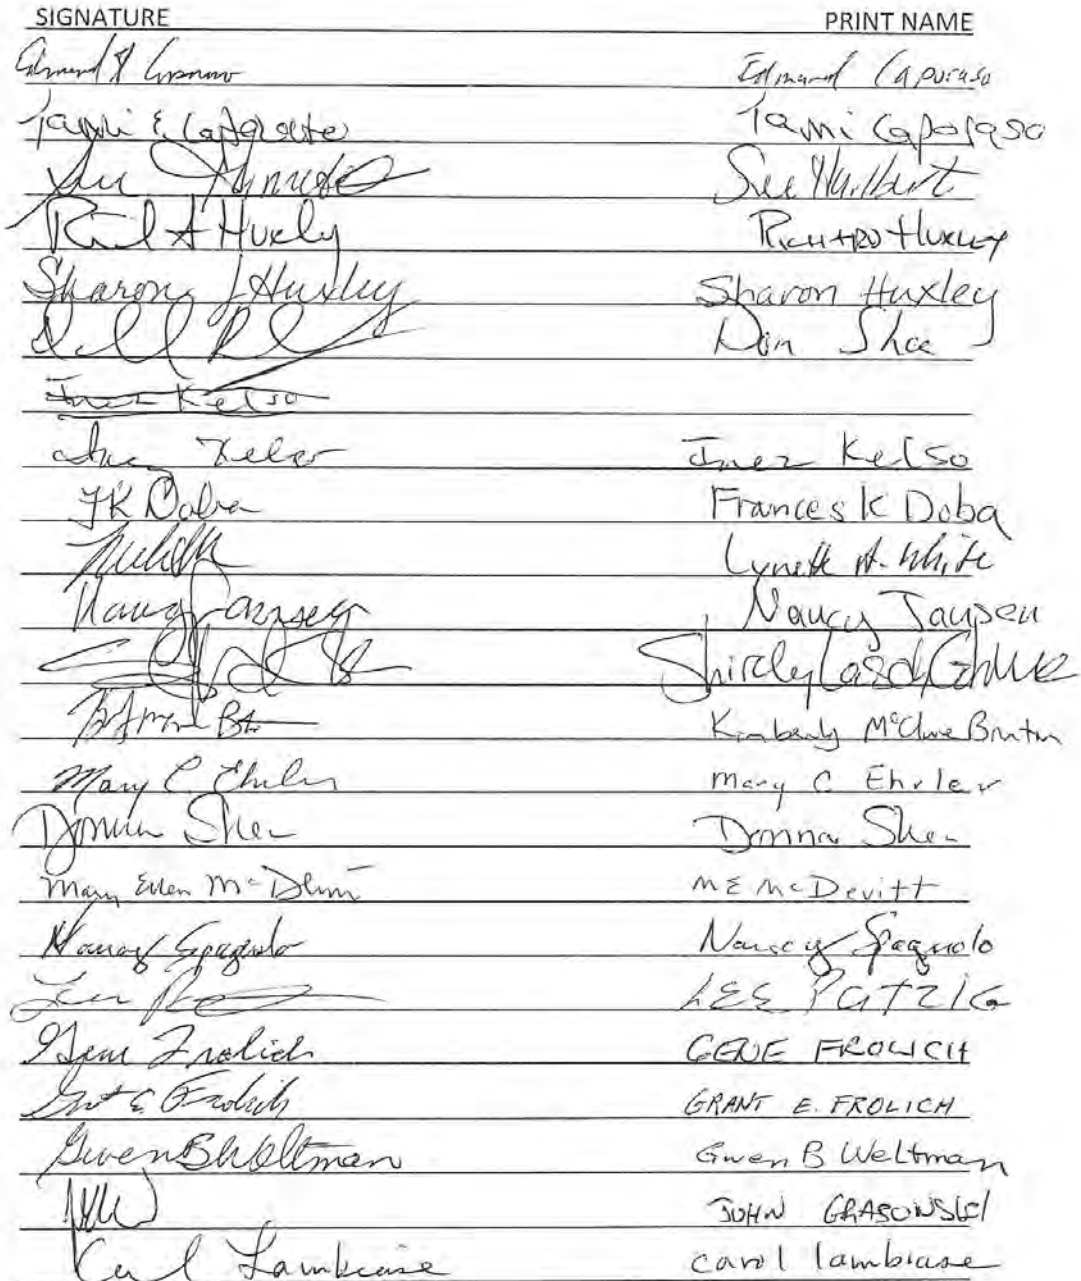 SIGNATURE PRINT NAME
Edmund Caporaso
Tami E Caporaso Tami Caporaso
Sue Sue
Richard A Huxley RICHARD HUXLEY
Sharon J Huxley Sharon Huxley
Don Shea
Inez Kelso
Inez Kelso Inez Kelso
FK Doba Frances K Doba
Lynette A. White
Nancy Jansen Nancy Jansen
Shirley
Kimberly McClure Brinton
Mary C. Ehrler Mary C Ehrler
Donna Shea Donna Shea
Mary Ellen McDevitt ME McDevitt
Nancy Spagnolo Nancy Spagnolo
Lee LEE PATZIG
Gene Frolich GENE FROLICH
Grant E Frolich GRANT E. FROLICH
Gwen B Weltman Gwen B Weltman
JOHN GRABOWSKI
Carol Lambiase carol lambiase